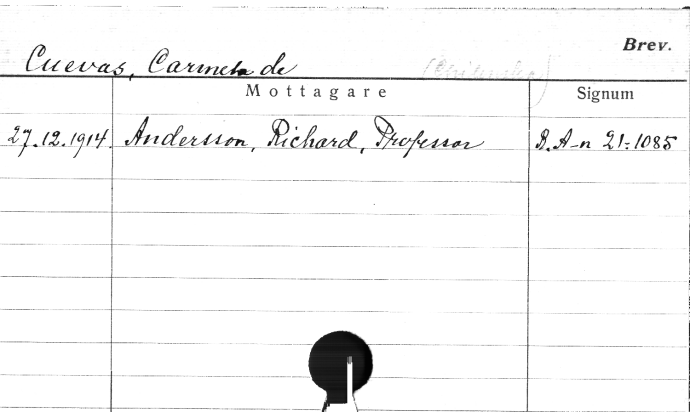 Brev.
Cuevas, Carmela de
Mottagare Signum
27.12.1914. Andersson, Richard, Professor R.A-n 21:1085